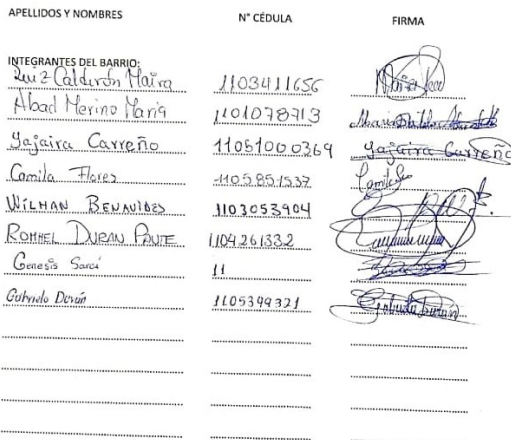 APELLIDOS Y NOMBRES N° CÉDULA FIRMA
INTEGRANTES DEL BARRIO:
Ruiz Calderón Maira 1103411656
Abad Merino Maria 1101078713
Yajaira Carreño 11051000369 Yajaira Carreño
Camila Flores 1105851537 Camila
WILMAN BENAVIDES 1103053904
ROMMEL DURAN PAUTE 1104261332
Genesis 11
Gabriela Durán 1105399321 Gabriela Durán